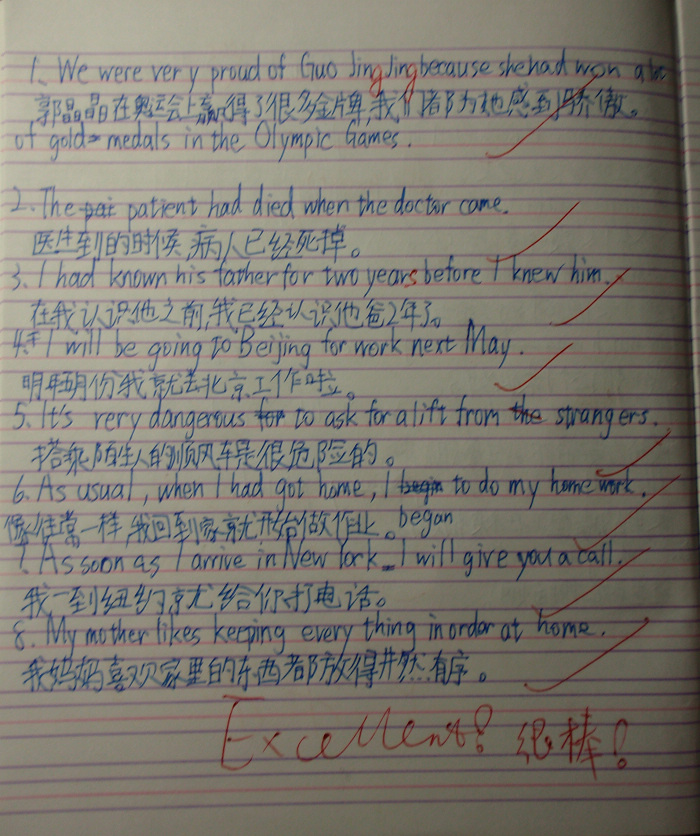 1、We were very proud of Guo JingJing because she had won a lot
郭晶晶在奥运会上赢得了很多金牌,我们都为她感到骄傲。
of gold medals in the Olympic Games.
2. The patient had died when the doctor came.
医生到的时候,病人已经死掉。
3. I had known his father for two years before I knew him.
在我认识他之前,我已经认识他爸2年了。
4. I will be going to Beijing for work next May.
明年5月份我就去北京工作啦。
5. It's very dangerous to ask for a lift from strangers.
搭乘陌生人的顺风车是很危险的。
6. As usual, when I had got home, I to do my homework.
像往常一样,我回到家就开始做作业。began
7. As soon as I arrive in New York, I will give you a call.
我一到纽约,就给你打电话。
8. My mother likes keeping every thing in order at home.
我妈妈喜欢家里的东西都放得井然有序。
Excellent! 很棒!